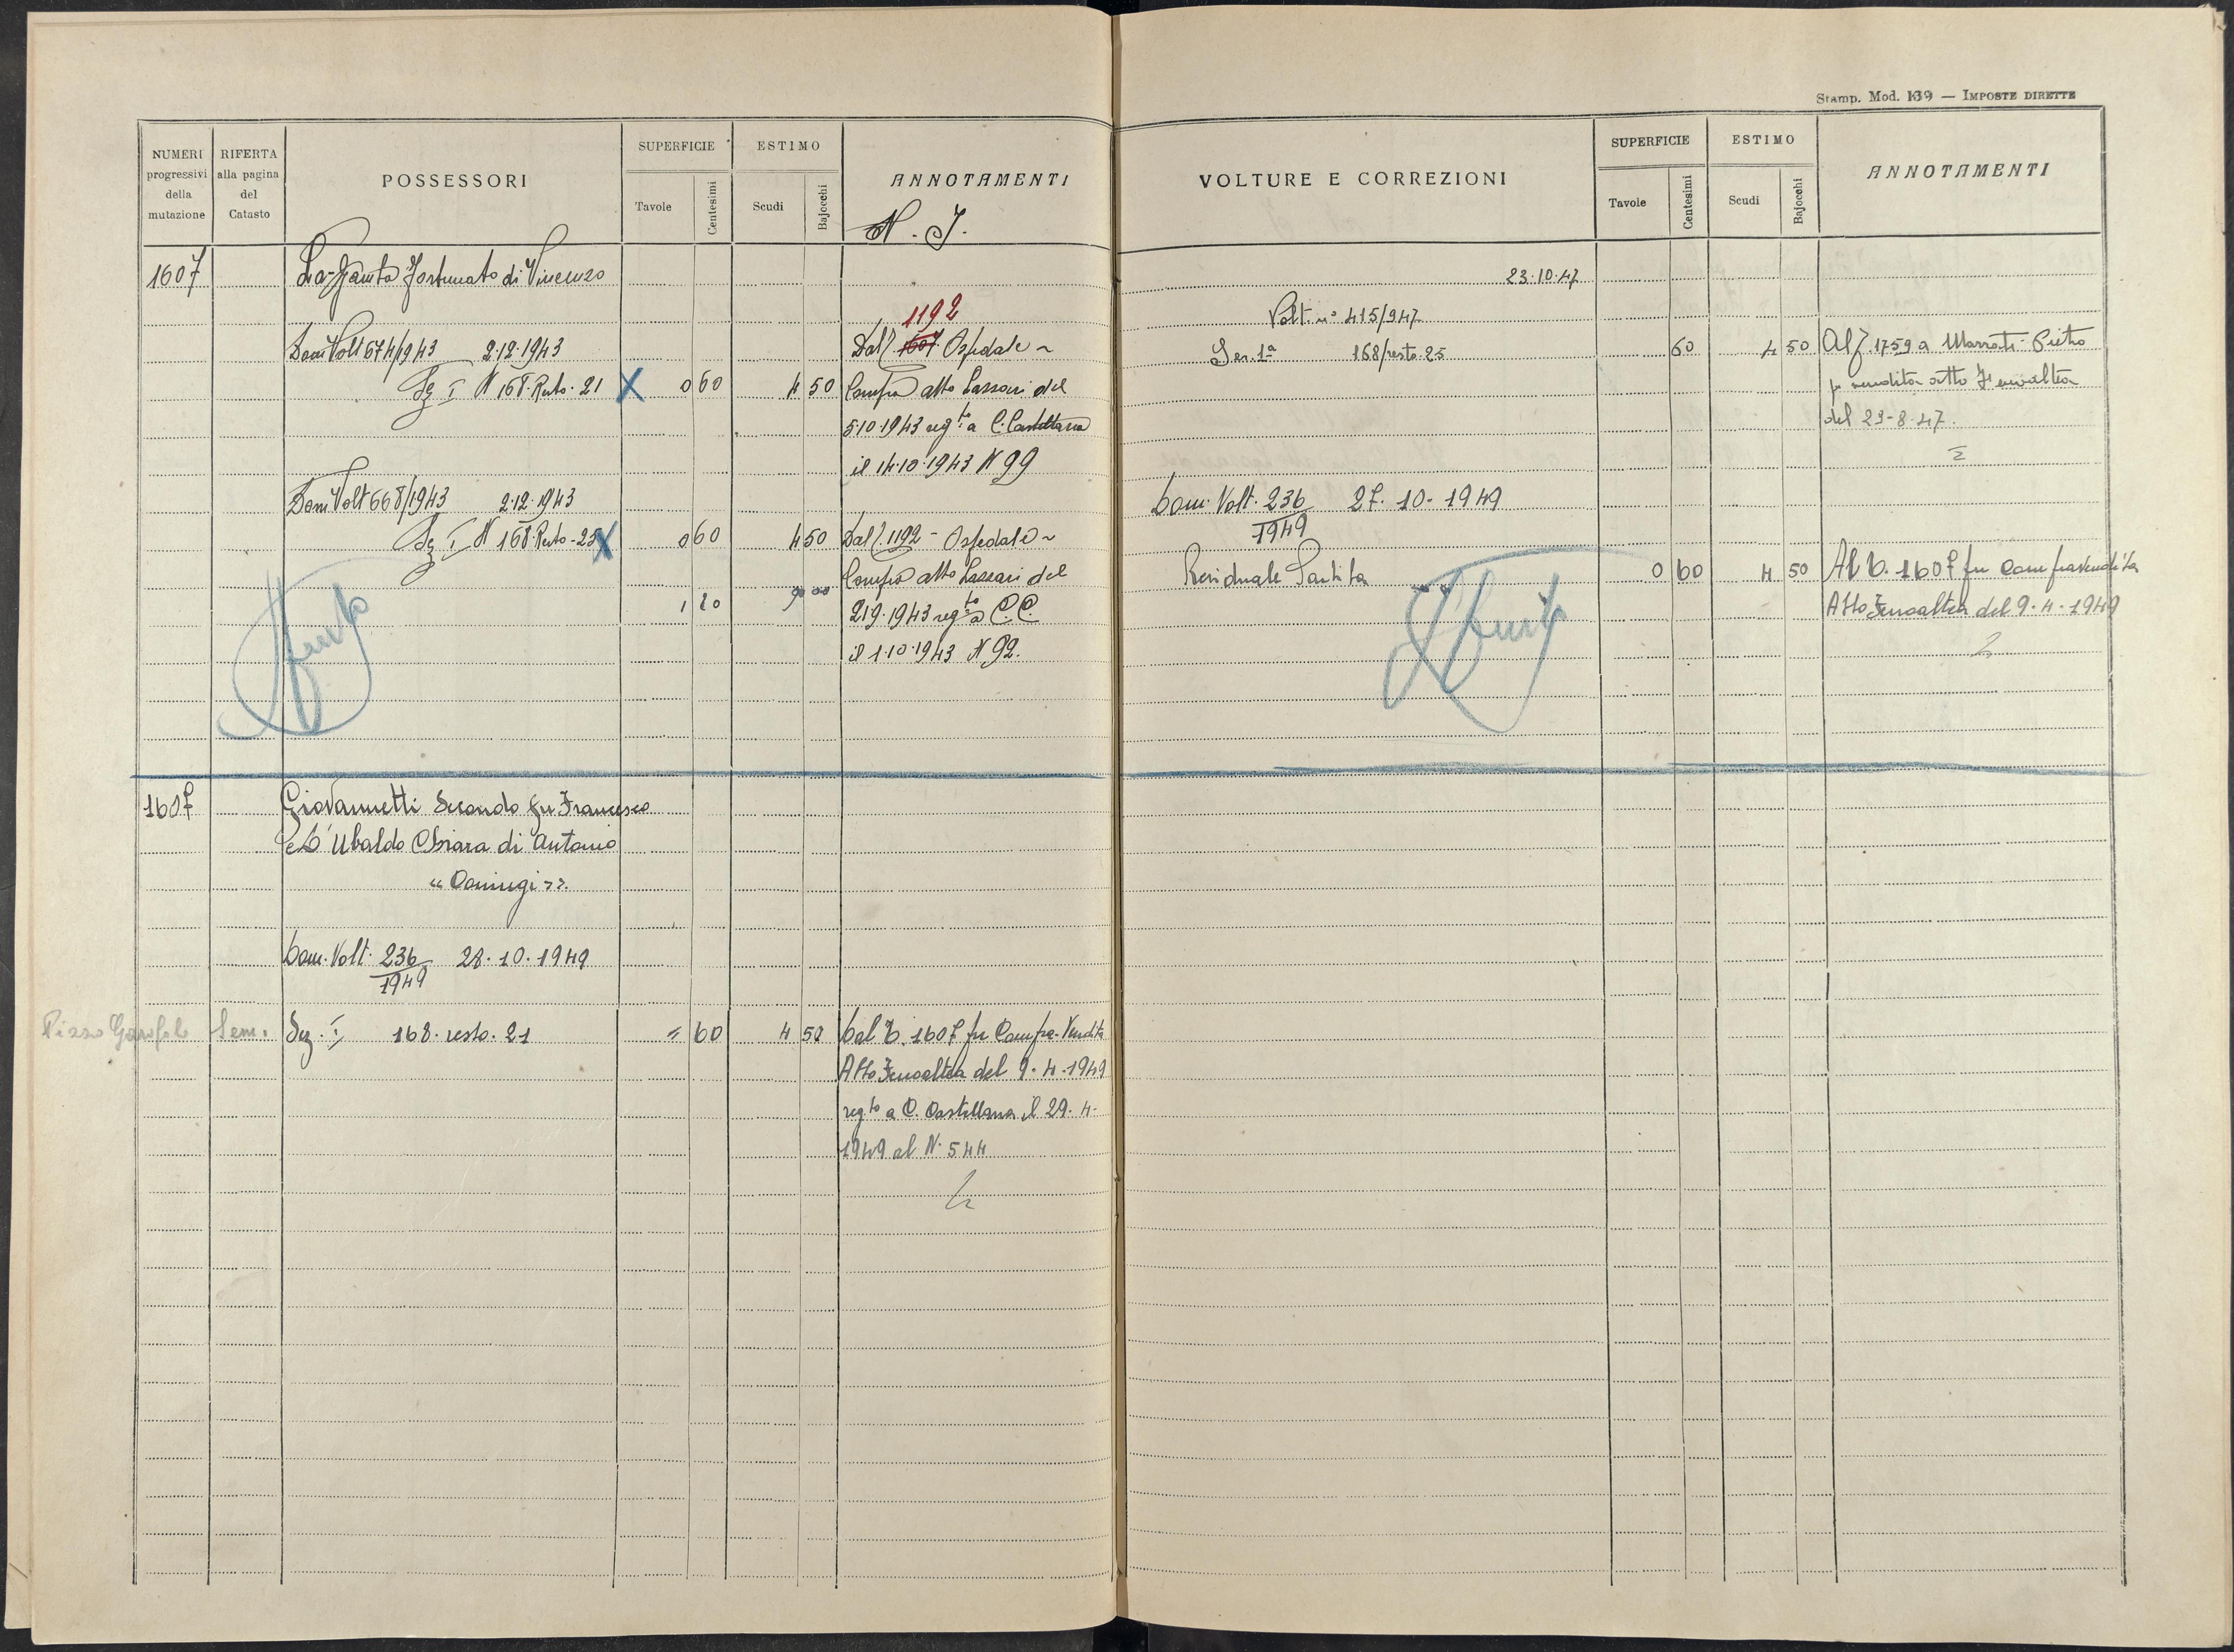 Stamp. Mod. 139 — IMPOSTE DIRETTE
NUMERI progressivi della mutazione
RIFERTA alla pagina del Catasto
POSSESSORI
SUPERFICIE
Tavole
Centesimi
ESTIMO
Scudi
Bajocchi
ANNOTAMENTI
N. I.
1607 Fortunato di Vincenzo
1192
Dom Volt 674/1943 2·12·1943 Dall. 1607 Ospedale ~
Sez I N 168·Resto·21 X 0 60 4 50 Compra atto Lazzari del
5·10·1943 reg.to a C. Castellana
il 14·10·1943 N 99
Dom Volt 668/1943 2·12·1943
Sez I N 168·Resto·25 X 0 60 4 50 Dal 1192 - Ospedale ~
Compra atto Lazzari del
1 20 9 00 21·9·1943 reg.to a C.C.
il 1·10·1943 N 92.
1607 Giovannetti Secondo fu Francesco
e D'Ubaldo Chiara di Antonio
« Coniugi »
Dom. Volt. 236/1949 28·10·1949
Pizzo Garofalo Sem. Sez. I 168. resto. 21 = 60 4 50 Dal N. 1607 per Compra-Vendita
Atto Fenoaltea del 9·4·1949
reg.to a C. Castellana il 29·4·
1949 al N. 544
VOLTURE E CORREZIONI
SUPERFICIE
Tavole
Centesimi
ESTIMO
Scudi
Bajocchi
ANNOTAMENTI
23·10·47
Volt. n° 415/947
Sez. 1a 168/resto 25 60 4 50 Al 1759 a Pietro
p vendita atto Fenoaltea
del 29-8-47.
Dom. Volt. 236/1949 27·10·1949
Residuale Partita 0 60 4 50 Al N. 1607 per compravendita
Atto Fenoaltea del 9·4·1949